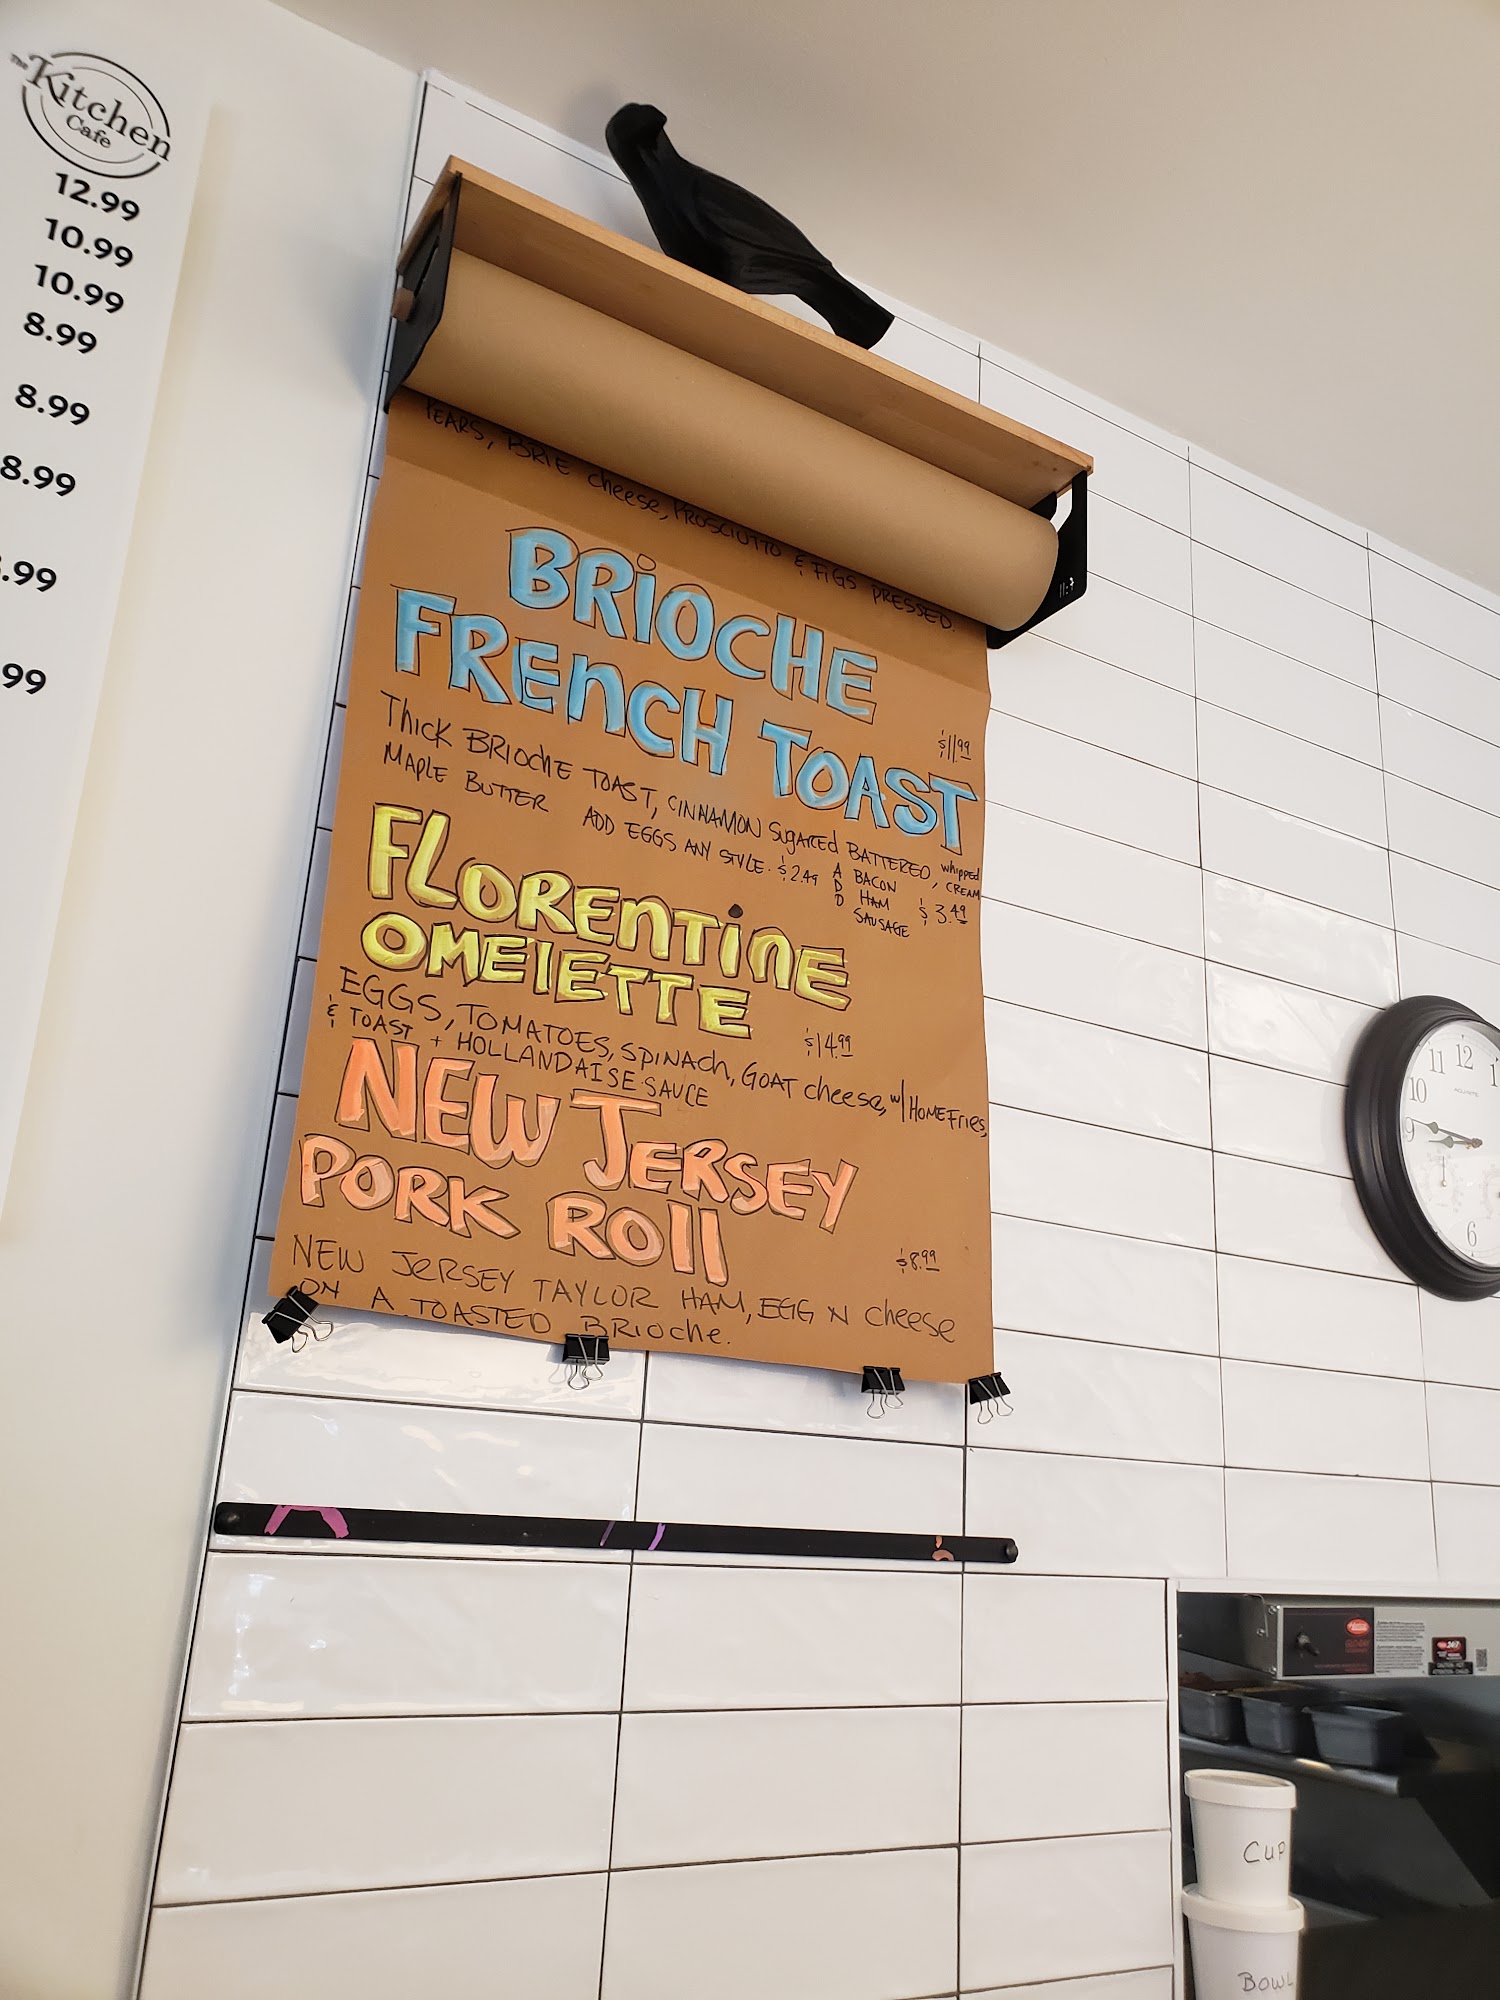 The
Kitchen
Cafe
12.99
10.99
10.99
8.99
8.99
8.99
.99
99
PEARS, BRIE cheese, PROSCIUTTO & FIGS PRESSED.
BRIOCHE
FRENCH TOAST
$11.99
Thick BRIOche TOAST, CINNAMON SUgARED BATTERED, whipped CREAM
MAPLE BUTTER ADD EGGS ANY STYLE. $2.49 ADD BACON
HAM $3.49
SAUSAGE
FLORENTINE
OMElETTE
$14.99
EGGS, TOMATOES, SPINACh, GOAT cheese, w/ HOME FRIES,
& TOAST + HOLLANDAISE SAUCE
NEW JERSEY
PORK ROll
$8.99
NEW JERSEY TAYLOR HAM, EGG N cheese
ON A TOASTED BRIOche.
11:7
12
1
11
10
9
6
ACURITE
CUP
BOWL